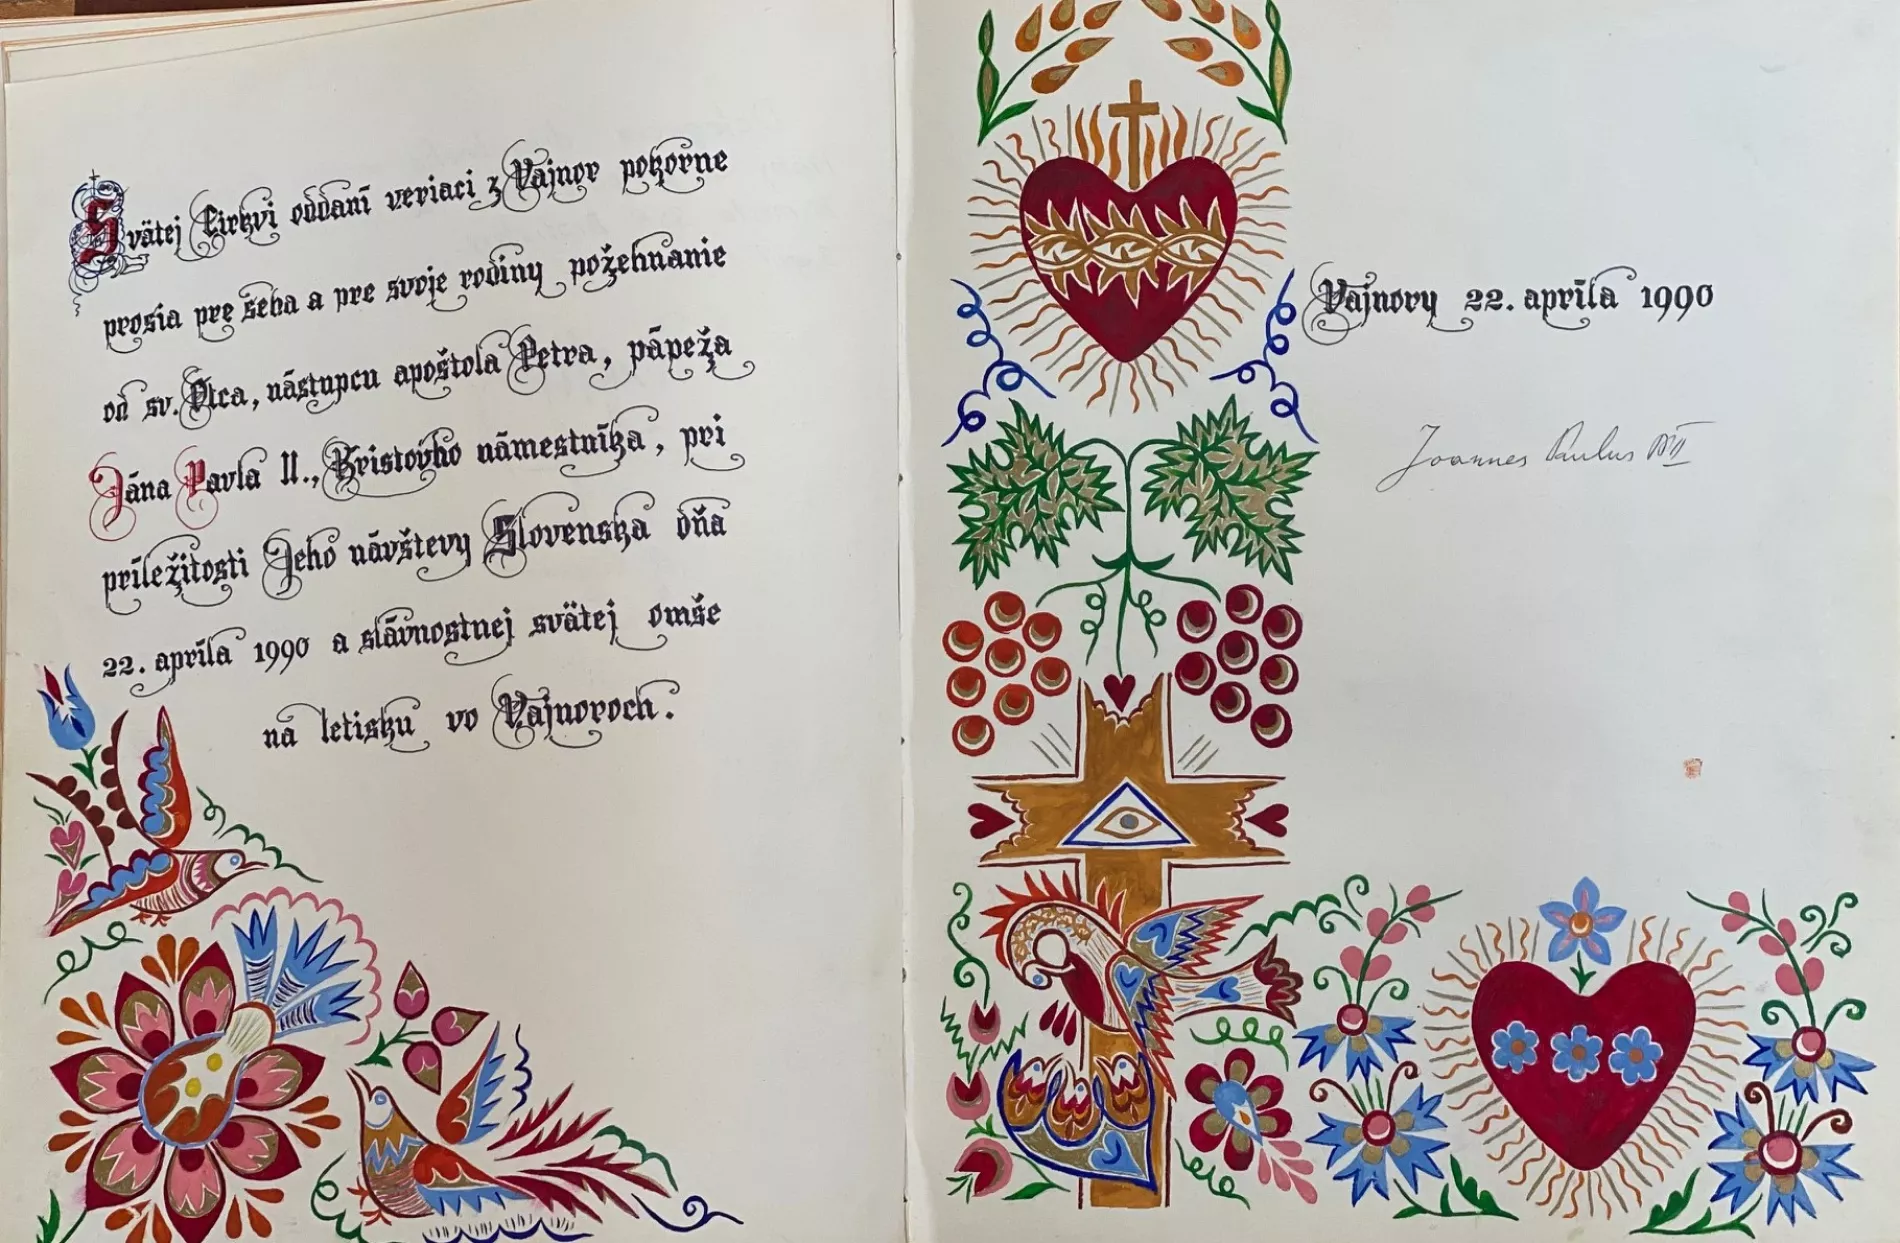 Svätej Cirkvi oddaní veriaci z Vajnor pokorne
prosia pre šeba a pre svoje rodiny požehnanie
od sv. Otca, nástupcu apoštola Petra, pápeža
Jána Pavla II., Kristovho námestníka, pri
príležitosti Jeho návštevy Slovenska dňa
22. apríla 1990 a slávnostnej svätej omše
na letisku vo Vajnoroch.
Vajnory 22. apríla 1990
Joannes Paulus PP II